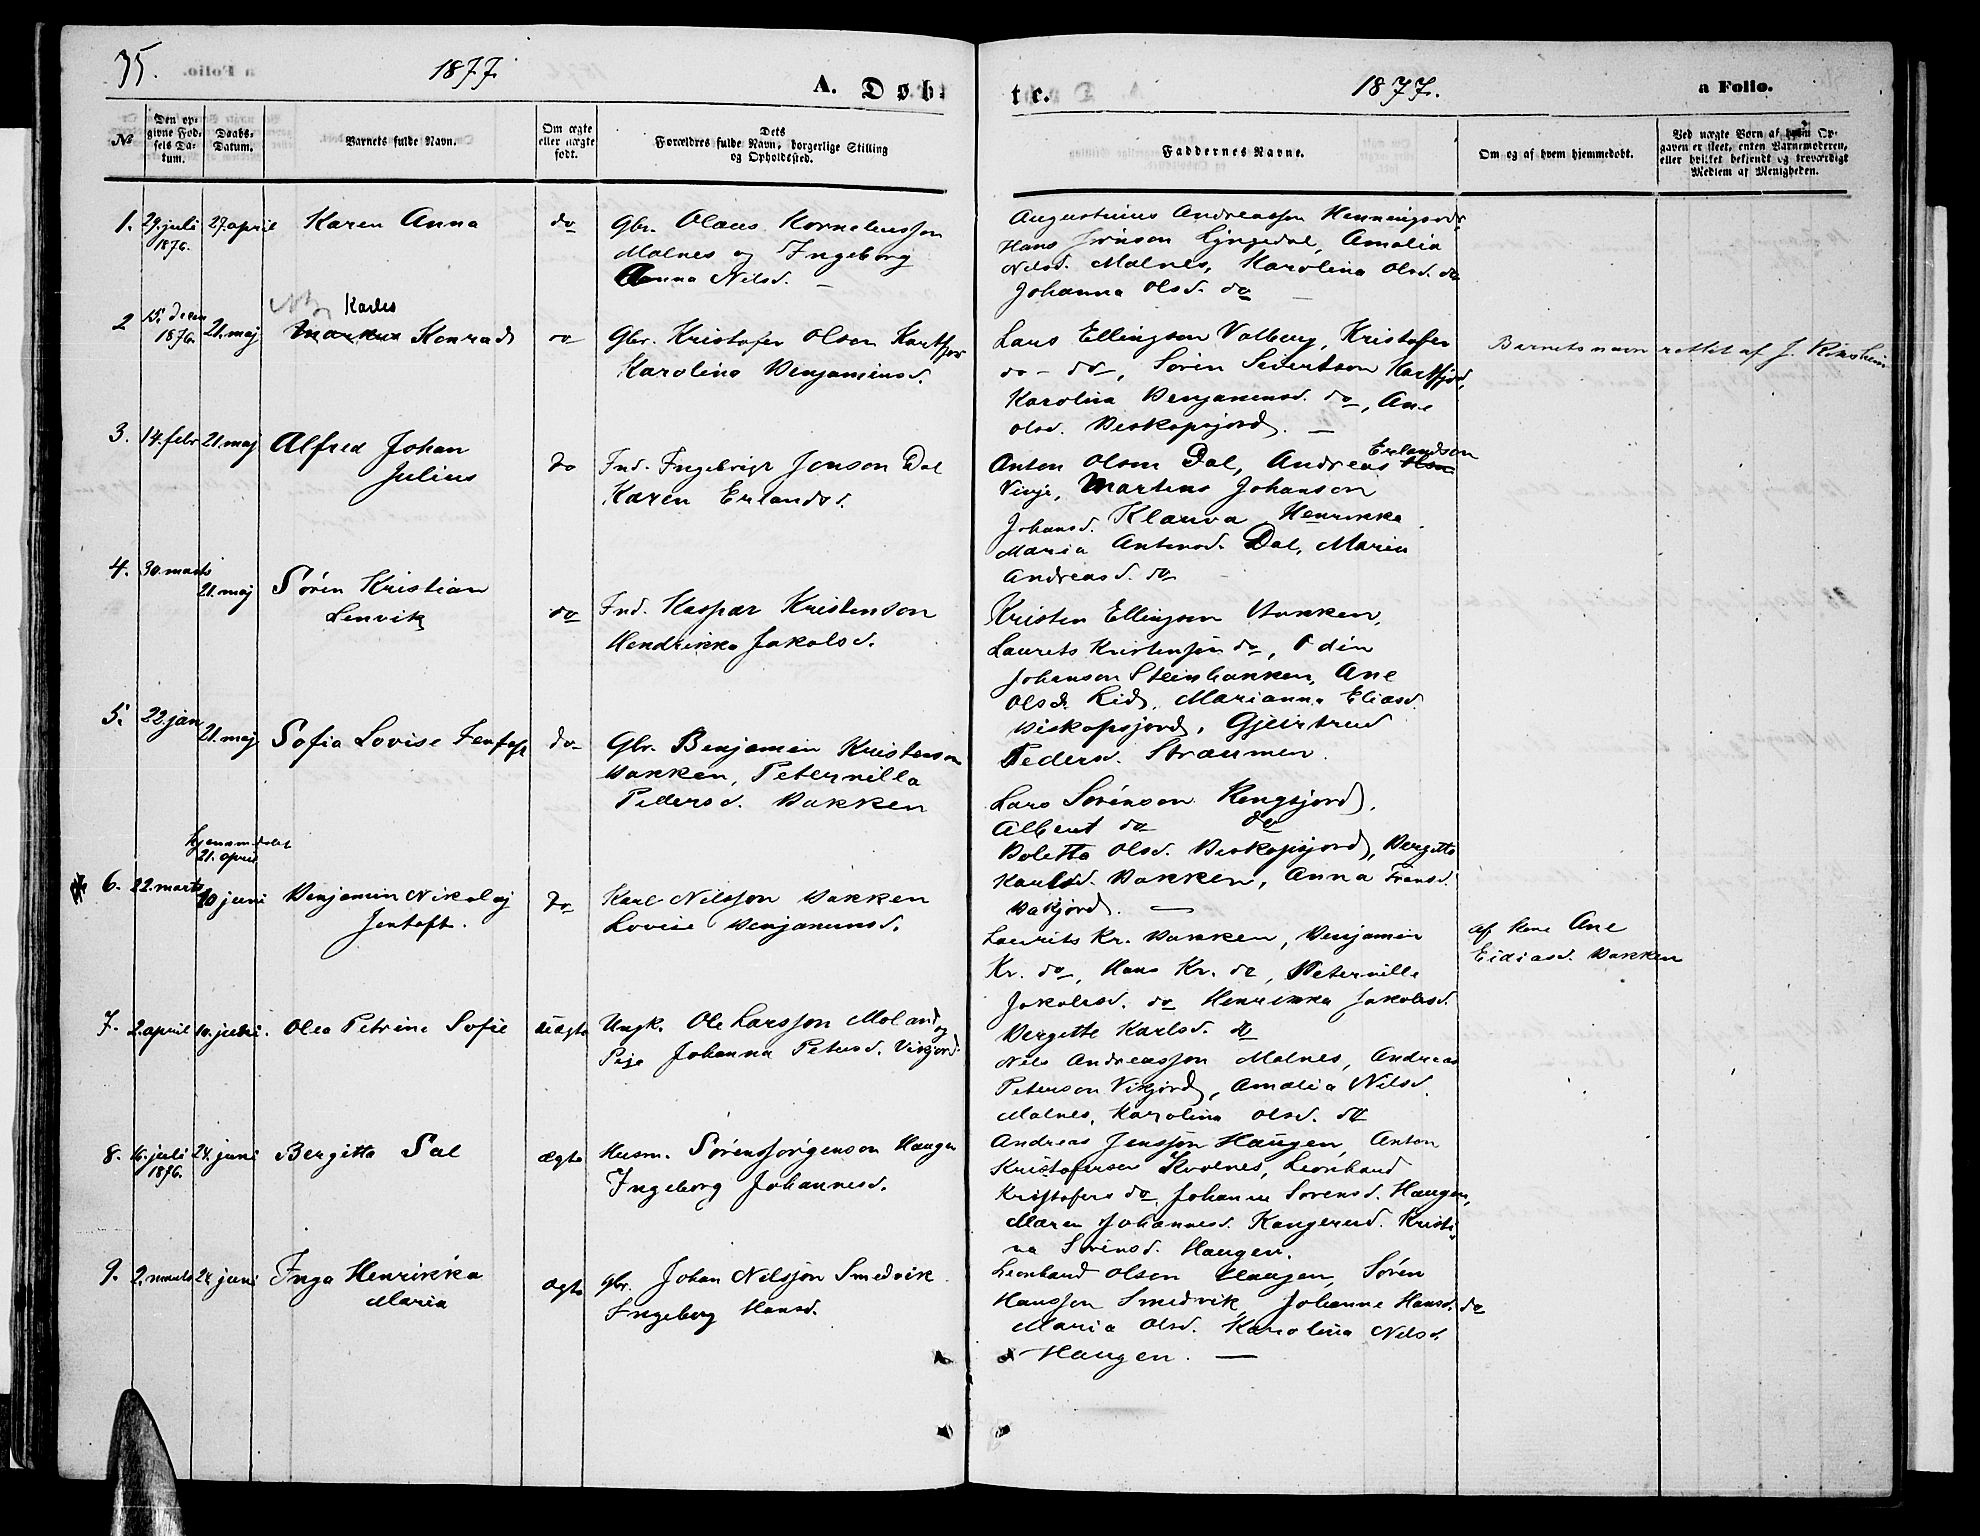 35.
1877.
A. Døb-
te.
1877.
a Folio.
№
Den op-
givne Fød-
sels Da-
tum.
Daabs-
Datum.
Barnets fulde Navn.
Om ægte
eller uægte
født.
Dets
Forældres fulde Navn, borgerlige Stilling
og Opholdssted.
Faddernes Navne.
Om og af hvem hjemmedøbt.
Ved uægte Børn af hvem Op-
gaven er skeet, enten Barnemoderen,
eller hvilket bekjendt og troværdigt
Medlem af Menigheden.
1. 29. juli
1876.
27. april
Karen Anna
do
Gbr. Olaus Kornelиusson
Malnes og Ingeborg
Anna Nilsd. —
Augustinus Andreassen
Hans
Amalia
Nilsd. Malnes, Karolina Olsd. do
Johanna Olsd. do —
2
15. decem
1876.
21. maj
NB. Karles
Markus Konrad
do
Gbr. Kristofer Olsen Kartfjor
Karolina Benjaminsd.
Lars Ellingsen Valberg, Kristofer
do - do, Sørin Sivertson Kartfjor,
Karolina Benjaminsd. do, Ane
Olsd. Biskopsjord. —
Barnets navn rettet af J.
3. 14. febr
21. maj
Alfred Johan
Julius
do
Ind. Ingebrigt Jonson Dal
Karen Erlandsd.
Erlandson
Anton Olsen Dal, Andreas Olsen
Martins Johanson
Johansd. Klauva Henrikka
Maria Antonsd. Dal, Maria
Andreasd. do
4. 30. marts
21. maj
Sørin Kristian
Lenvik
do
Ind. Kaspar Kristenson
Hendrikka Jakobsd.
Kristen Ellingsen Bakken,
Laurits Kristensøn do, Odin
Johanson Steinbakken, Ane
Olsd. Lid, Marianna Eliasd.
Biskopsjord, Gjertrud
Pedersd. Straumen.
5. 22. jan
21. maj
Sofia Lovise Jentoft
do
Gbr. Benjamin Kristenson
Bakken, Peternilla
Pedersd. Bakken
Lars Sørenson Rengsjord,
Albert do do
Boletta Olsd. Biskopsjord, Bergitte
Karlsd. Bakken, Anna Fransd.
Vakjord. —
hjemmedøbt
21. april
6. 22. marts
10 juni
Benjamin Nikolaj
Jentoft.
do
Karl Nilsson Bakken
Lovise Benjaminsd.
Laurits Kr. Bakken, Benjamin
Kr. do, Hans Kr. do, Peternille
Jakobsd. do Henrikka Jakobsd.
Bergitte Karlsd. do
af Kone Ane
Eidiasd. Bakken
7. 2. april
10. juni.
Olea Petrine Sofie
uægte
Ungk. Ole Larsson Moland og
Pige Johanna Petersd. Vikjord.
Nils Andreassøn Malnes, Andreas
Peterson Vikjord, Amalia Nilsd.
Malnes, Karolina Olsd. do
8. 16. juli
1876.
24. juni
Bergitta Sal
ægte
Husm. Søren Jørgenson Haugen
Ingeborg Johannesd.
Andreas Jenssøn Haugen, Anton
Kristofersen Kvolnes, Leonhard
Kristofers do Johanne Sorensd. Haugen,
Maren Johannesd. Kangerud. Kristi
na Sørensd. Haugen.
9. 2. marts
24 juni
Inga Henrikka
Maria
ægte
Gbr. Johan Nilssøn Smedvik
Ingeborg Hansd.
Leonhard Olsen Haugen, Søren
Hansson Smedvik, Johanne Hansd. do
Maria Olsd. Karolina Nilsd.
Haugen. —